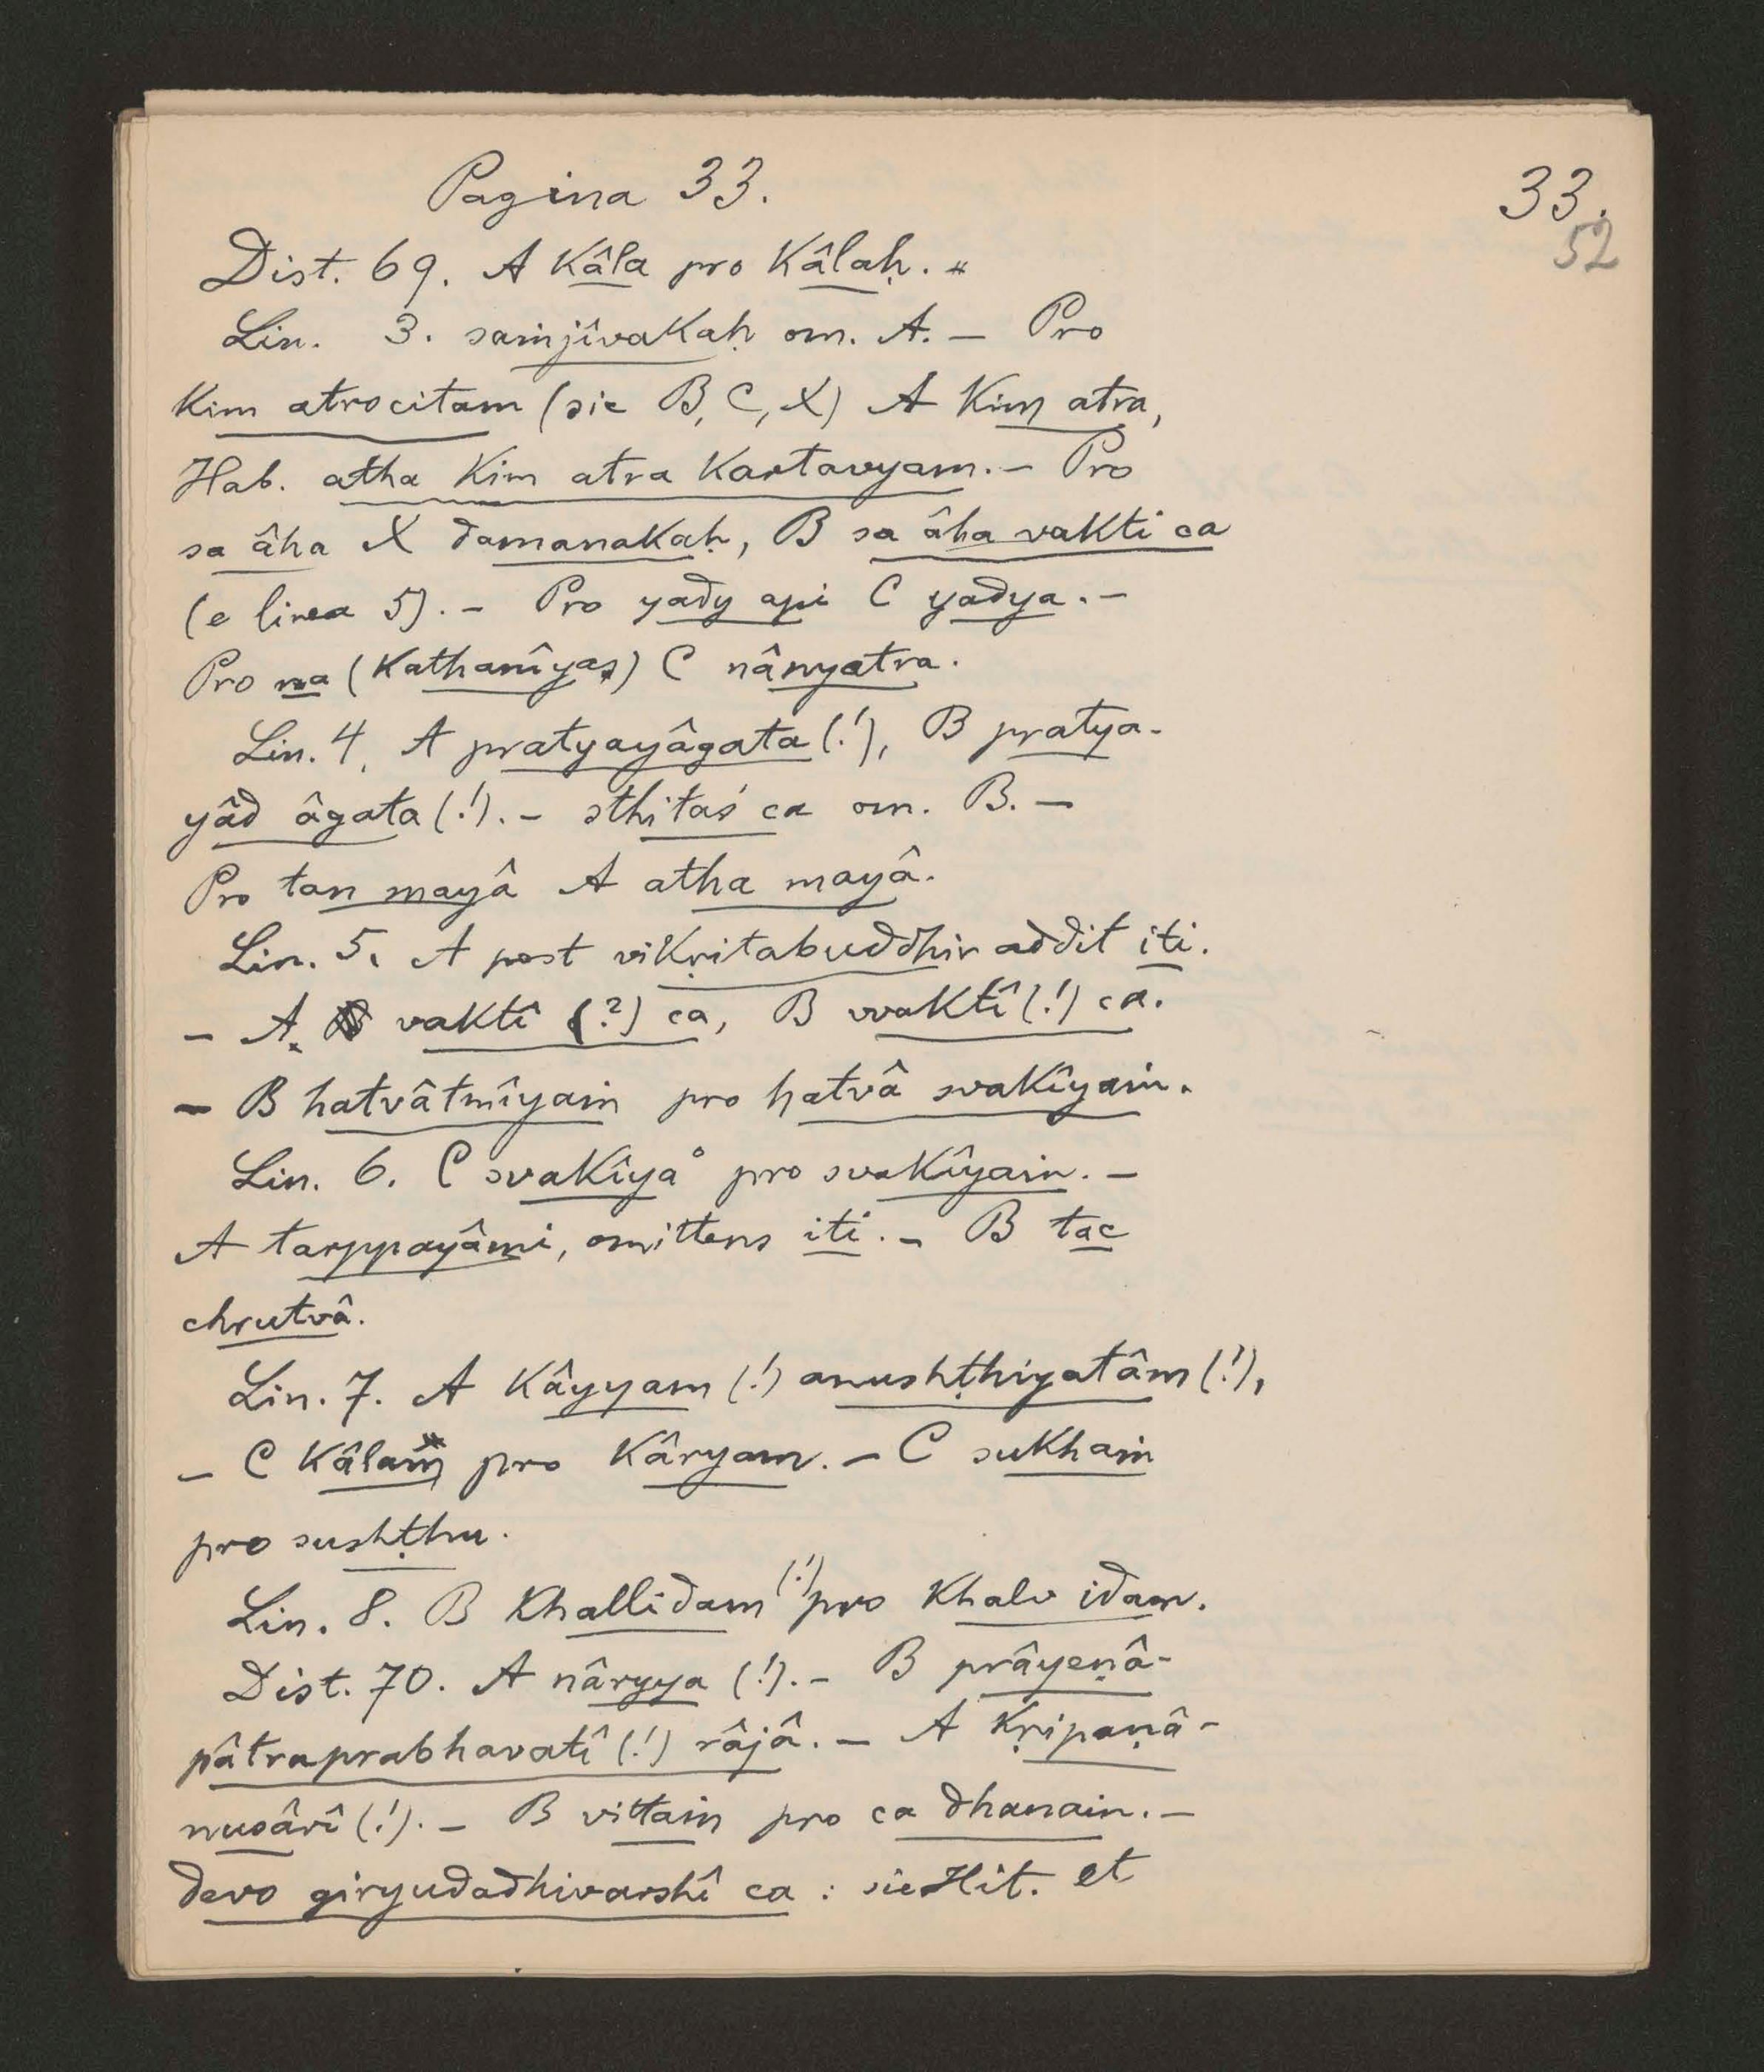 Pagina 33.
33.
52
Dist. 69. A kâla pro kâlaḥ.
Lin. 3. saṁjîvakaḥ om. A. – Pro
kim atrocitam (sic B, C, X) A kim atra,
Hab. atha kim atra kartavyam. – Pro
sa âha X damanakaḥ, B sa âha vakti ca
(e linea 5). – Pro yady api C yadya. –
Pro na (kathanîyas) C nânyatra.
Lin. 4. A pratyayâgata (!), B pratya-
yâd âgata (!). – sthitaś ca om. B. –
Pro tan mayâ A atha mayâ.
Lin. 5. A post vikṛitabuddhir addit iti.
– A vaktî (?) ca, B vvaktî (!) ca.
– B hatvâtmîyaṁ pro hatvâ svakîyaṁ.
Lin. 6. C svakîya° pro svakîyaṁ. –
A tarppayâmi, omittens iti. – B tac
chrutvâ.
Lin. 7. A kâyyam (!) anushṭhiyatâm (!),
– C kâlaṁ pro kâryam. – C sukhaṁ
pro sushṭhu.
Lin. 8. B khallidam (!) pro khalv idam.
Dist. 70. A nâryya (!). – B prâyeṇâ-
pâtraprabhavatî (!) râjâ. – A kṛipaṇâ-
nusârî (!). – B vittaṁ pro ca dhanaṁ. –
devo giryudadhivarshî ca : sic Hit. et